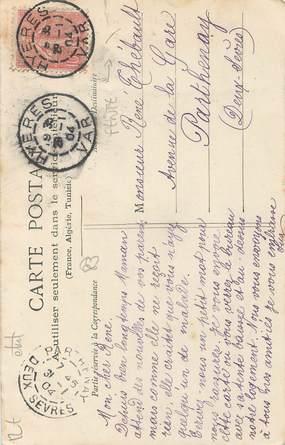 CARTE POSTALE
A utiliser seulement dans le service intérieur
(France, Algérie, Tunisie)
Partie réservée à la Correspondance
destinataire
HYERES
VAR
HYERES
VAR
04
DEUX-SEVRES
83
Monsieur René Thébault
Avenue de la Gare
Parthenay
Deux-Sèvres
Mon cher René
Depuis bien longtemps Maman
attend des nouvelles de vos parents
mais comme elle ne reçoit
rien elle craint que vous n'ayez
quelqu'un de malade.
Ecrivez nous un petit mot pour
nous rassurer je vous envoie
cette carte où vous verrez le bureau
avec sa tente basse et au dessus
notre logement. Nous vous envoyons
à tous nos amitiés je vous embrasse